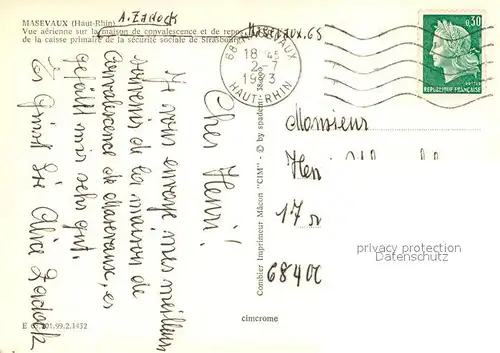 MASEVAUX (Haut-Rhin)
Vue aérienne sur la maison de convalescence et de repos
de la caisse primaire de la sécurité sociale de Strasbourg
A. Zadock
Masevaux.68
68 MASEVAUX
18 45
2-7
1973
HAUT-RHIN
0,30
REPUBLIQUE FRANÇAISE
Cher Henri!
Je vous envoye mes meilleurs
souvenirs de la maison de
Convalescence de Masevaux, es
gefällt mir sehr gut.
Es Grüsst Sie Alice Zadock
Combier Imprimeur Mâcon "CIM" - © by spadem
cimcrome
Monsieur
Henri
17
68400
privacy protection
Datenschutz